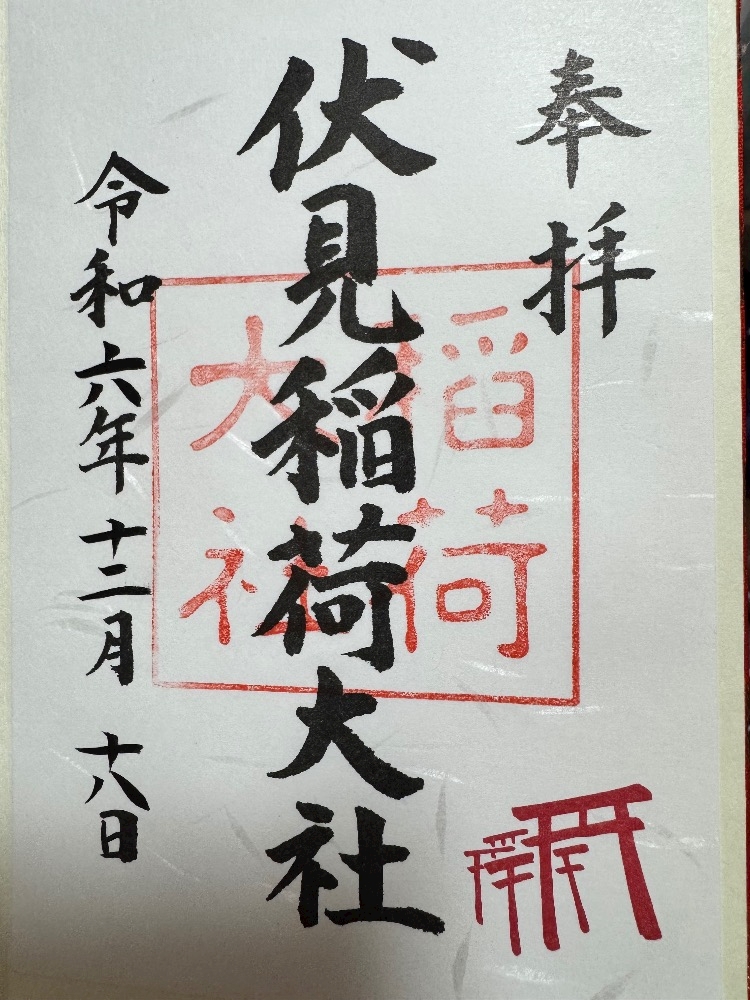 奉拝
伏見稲荷大社
稲荷
大社
令和六年十二月十八日